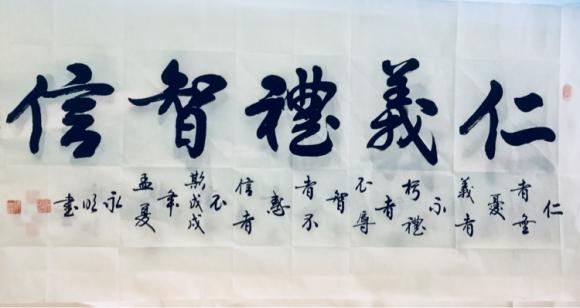 仁義禮智信
仁者無憂義者不朽禮者不辱智者不惑信者不欺戊戌年孟夏永明書